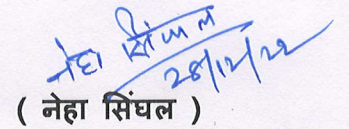 नेहा सिंघल
28/12/22
( नेहा सिंघल )